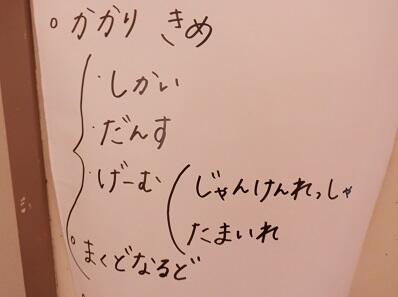 。かかり きめ
・しかい
・だんす
・げーむ
じゃんけんれっしゃ
たまいれ
。まくどなるど